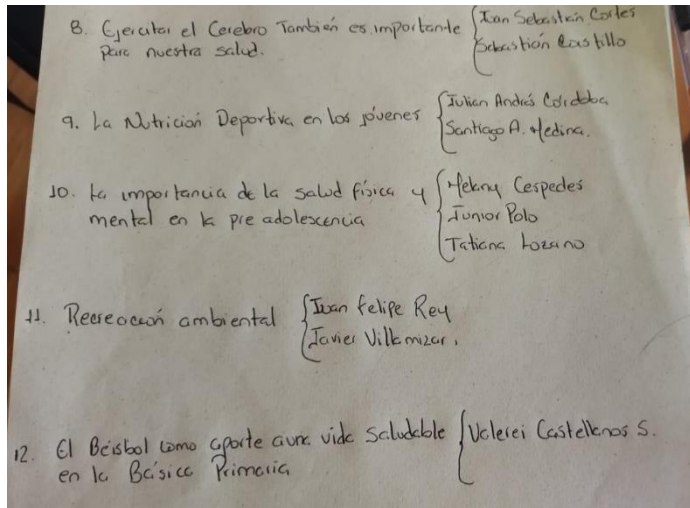 8. Ejercitar el Cerebro También es importante
para nuestra salud.
Juan Sebastián Cortes
Sebastián Castillo
9. La Nutrición Deportiva en los jóvenes
Julian Andrés Córdoba
Santiago A. Medina.
10. La importancia de la salud física y
mental en la pre adolescencia
Melany Cespedes
Junior Polo
Tatiana Lozano
11. Recreación ambiental
Juan Felipe Rey
Javier Villamizar.
12. El Beisbol como aporte a una vida Saludable
en la Básica Primaria
Valerei Castellanos S.